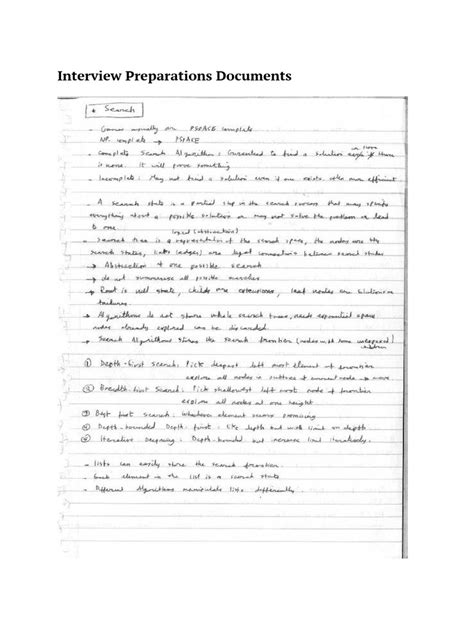 Interview Preparations Documents
* Search
- Games usually are PSPACE complete
NP. complete → PSPACE
- Complete Search Algorithm: Guaranteed to find a solution if there
is none. It will prove something
- Incomplete: May not find a solution even if one exists, often more efficient
- A search state is a partial step in the search process that may specify
everything about a possible solution or may not solve the problem or lead
to one
- Search tree is a representation of the search space, the nodes are the
search states, links (edges) are legal connections between search states
→ Abstraction of one possible search
→ do not summarise all possible searches
→ Root is null state, childs are extensions, leaf nodes are solutions or
failures.
→ Algorithms do not store whole search trees, needs exponential space
nodes already explored can be discarded.
→ Search Algorithms stores the search frontier (nodes with some unexplored)
children
① Depth-first search: Pick deepest left most element of frontier
explore all nodes in subtree of current node → move
② Breadth-first Search: Pick shallowest left most node of frontier
explore all nodes at one height
③ Best first search: Whichever element seems promising
④ Depth-bounded Depth first: like depth but with limit on depth
⑤ Iterative Deepening: Depth-bounded but increase limit iteratively.
- lists can easily store the search frontier.
- Each element in the list is a search state
- Different Algorithms manipulate lists differently.